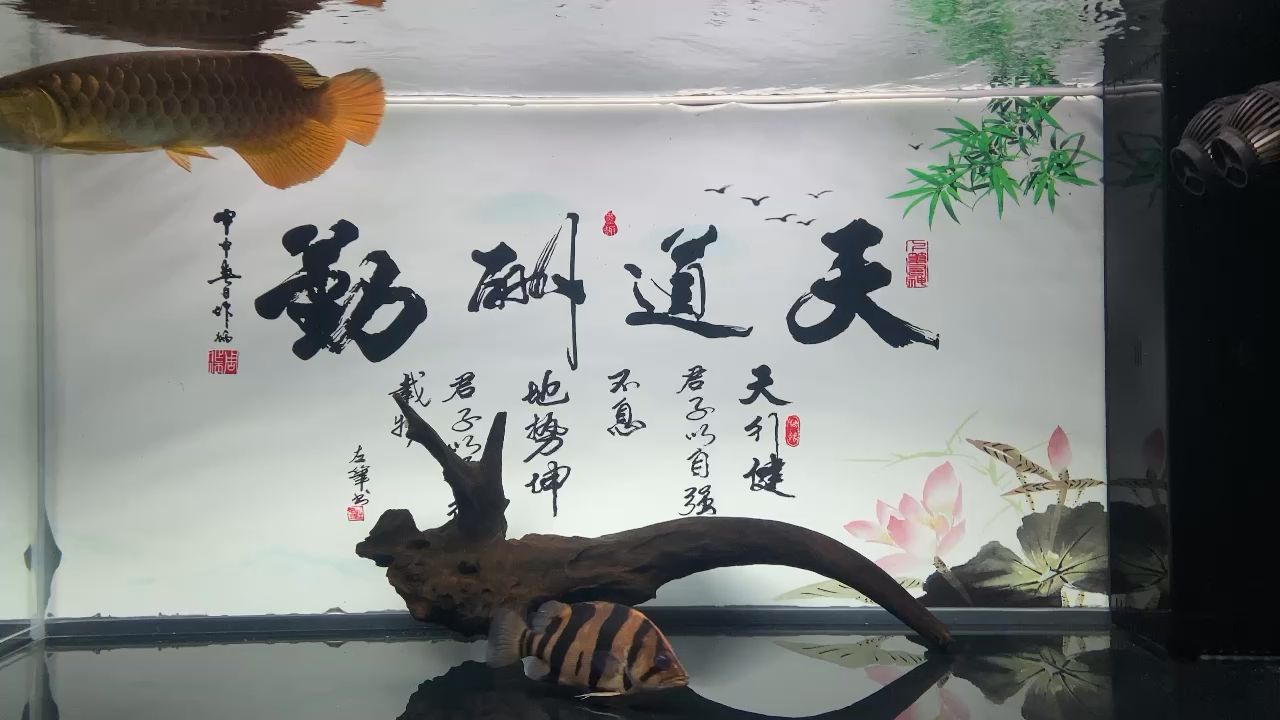 天道酬勤
天行健
君子以自强
不息
地势坤
君子以
载物
左笔书